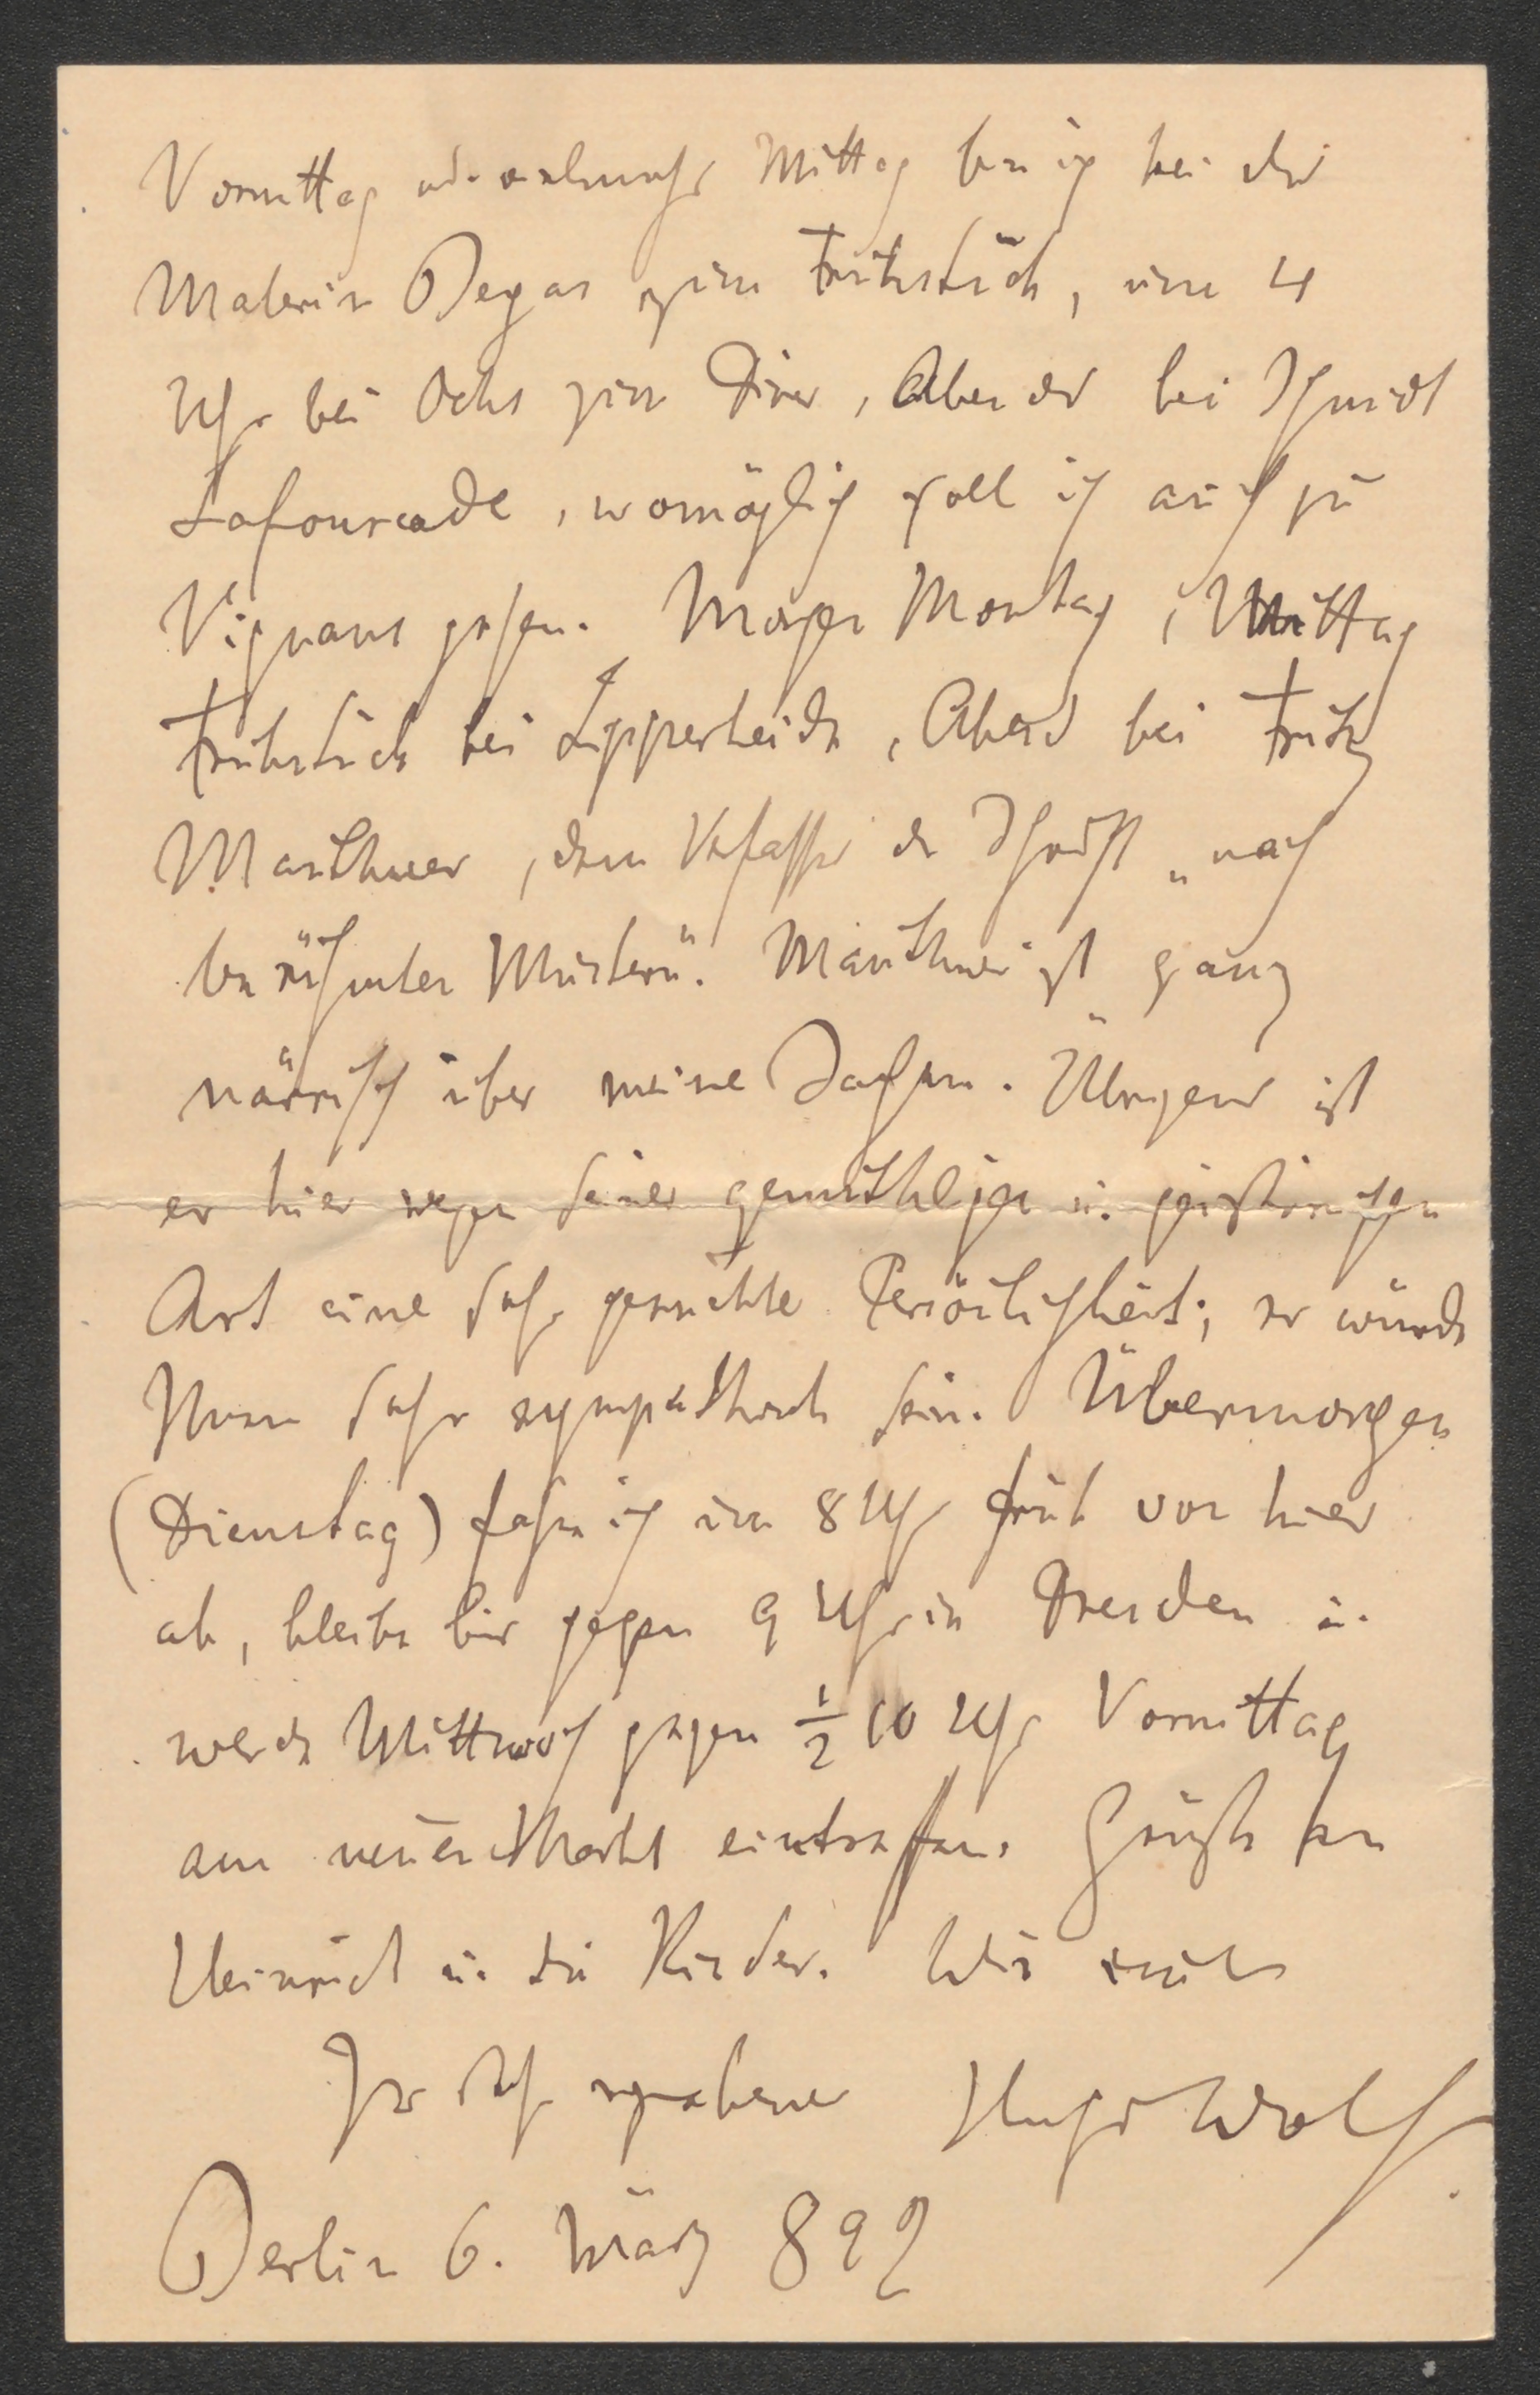 Vormittag oder vielmehr Mittag bin ich bei der
Malerin Begas zum Frühstück, um 4
Uhr bei Ochs zum Diner, Abend bei Schmidt
Lafourcade, womöglich soll ich auch zu
Vignaus gehen. Morgen Montag, Mittag
Frühstück bei Lipperheide, Abend bei Fritz
Mauthner, dem Verfasser der Schrift „nach
berühmten Mustern". Mauthner ist ganz
närrisch über meine Sachen. Übrigens ist
er hier wegen seiner gemüthlichen u. geistreichen
Art eine sehr gesuchte Persönlichkeit; er würde
Ihnen sehr sympathisch sein. Übermorgen
(Dienstag) fahre ich um 8 Uhr früh von hier
ab, bleibe bis gegen 9 Uhr in Dresden u.
werde Mittwoch gegen ½ 10 Uhr Vormittag
am neuen Markt eintreffen. Grüße an
Heinrich u. die Kinder.
Ihr sehr ergebener Hugo Wolf.
Berlin 6. März 892